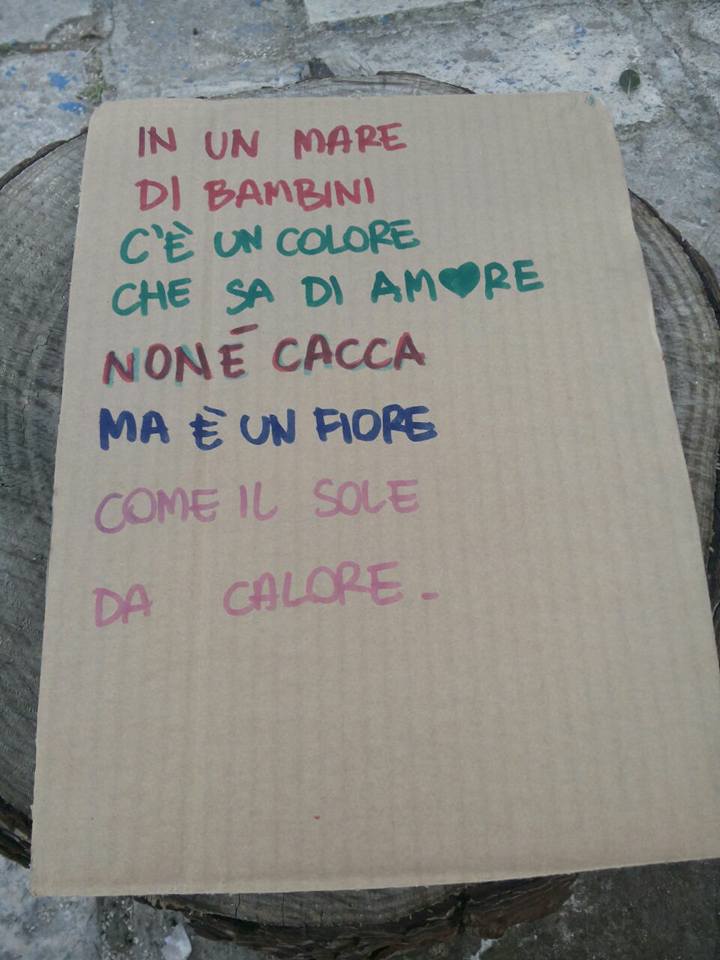 IN UN MARE
DI BAMBINI
C'È UN COLORE
CHE SA DI AM♥RE
NON É CACCA
MA È UN FIORE
COME IL SOLE
DA CALORE.